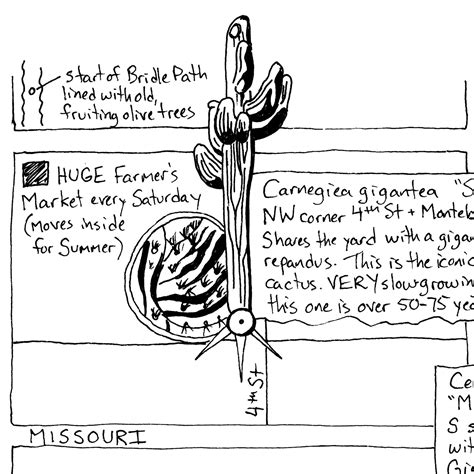 start of Bridle Path
lined with old,
fruiting olive trees
HUGE Farmer's
Market every Saturday
(moves inside
for Summer)
Carnegiea gigantea "S
NW corner 4th St + Montel
Shares the yard with a gigan
repandus. This is the iconic
cactus. VERY slow growin
this one is over 50-75 yea
4th St
MISSOURI
Ce
"M
S s
wit
Gi